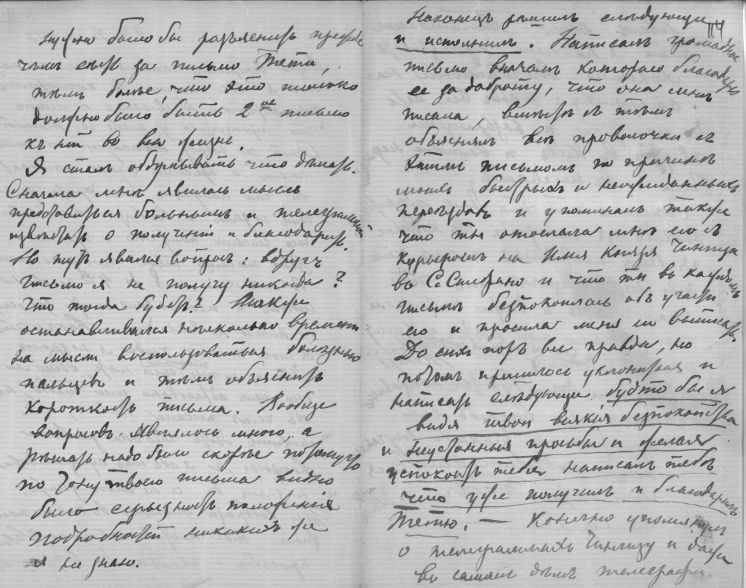 нужно было бы разъяснить прежде
чем за письмо Тети,
тѣмъ болѣе, что это только
должно было быть 2ое письмо
къ ней во всю жизнь.
Я сталъ обдумывать что дѣлать.
Сначала мнѣ явилась мысль
представиться больнымъ и телеграммой
извѣстить о полученіи и благодарить.
Но тутъ явился вопросъ: вдругъ
письмо я не получу никогда?
Что тогда будетъ? Также
останавливался нѣсколько времени
на мысли воспользоваться болѣзнью
пальцевъ и тѣмъ объяснить
короткость письма. Вообще
вопросовъ явилось много, а
рѣшать надо было скорѣе потому что
по тону твоего письма видно
было серьезность положенія
подробностей никакихъ же
я не знаю.
114
Наконецъ рѣшилъ слѣдующее
и исполнилъ. Написалъ громадное
письмо вначалѣ котораго благодарю
ее за доброту, что она мнѣ
писала, вмѣстѣ съ тѣмъ
объясняю всѣ проволочки съ
этимъ письмомъ по причинѣ
моихъ быстрыхъ и неожиданныхъ
переѣздовъ и упоминаю также
что ты отослала мнѣ его съ
курьеромъ на имя Князя
въ С. Стефано и что ты въ каждомъ
письмѣ безпокоилась объ участи
его и просила меня
До сихъ поръ все правда, но
потомъ пришлось уклониться и
написать слѣдующее будто бы я
видя твои всякія безпокойства
и неустанныя просьбы и желая
успокоить тебя написалъ тебѣ
что уже получилъ и благодарилъ
Тетю. — Конечно упомянулъ
о телеграммахъ и даже
въ самомъ дѣлѣ